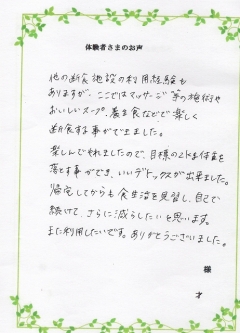 体験者さまのお声
他の断食施設の利用経験も
ありますが、ここではマッサージ等の施術や
おいしいスープ、養生食などで楽しく
断食する事ができました。
楽しんでやれましたので、目標の2kg体重を
落とす事ができ、いいデトックスが出来ました。
帰宅してからも食生活を見直し、自宅で
続けて、さらに減らしたいと思います。
また利用したいです。ありがとうございました。
様
才